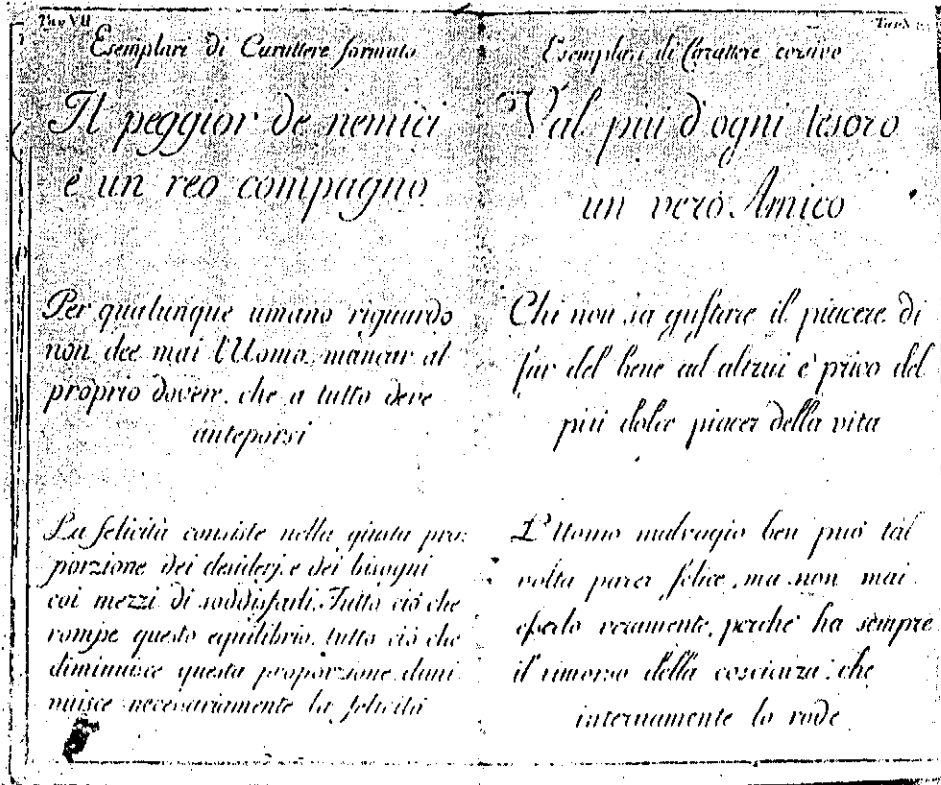 Tav VII
Esemplari di Carattere formato
Il peggior de nemici
è un reo compagno
Per qualunque umano riguardo
non dee mai l'Uomo mancar al
proprio dovere, che a tutto deve
anteporsi
La felicità consiste nella giusta pro:
porzione dei desiderj, e dei bisogni
coi mezzi di soddisfarli. Tutto ciò che
rompe questo equilibrio, tutto ciò che
diminuisce questa proporzione dimi
nuisce necessariamente la felicità
Tav
Esemplari di Carattere corsivo
Val più d'ogni tesoro
un vero Amico
Chi non sa gustare il piacere di
far del bene ad altrui è privo del
più dolce piacer della vita
L'Uomo malvagio ben può tal
volta parer felice, ma non mai
esserlo veramente, perchè ha sempre
il rimorso della coscienza, che
internamente lo rode